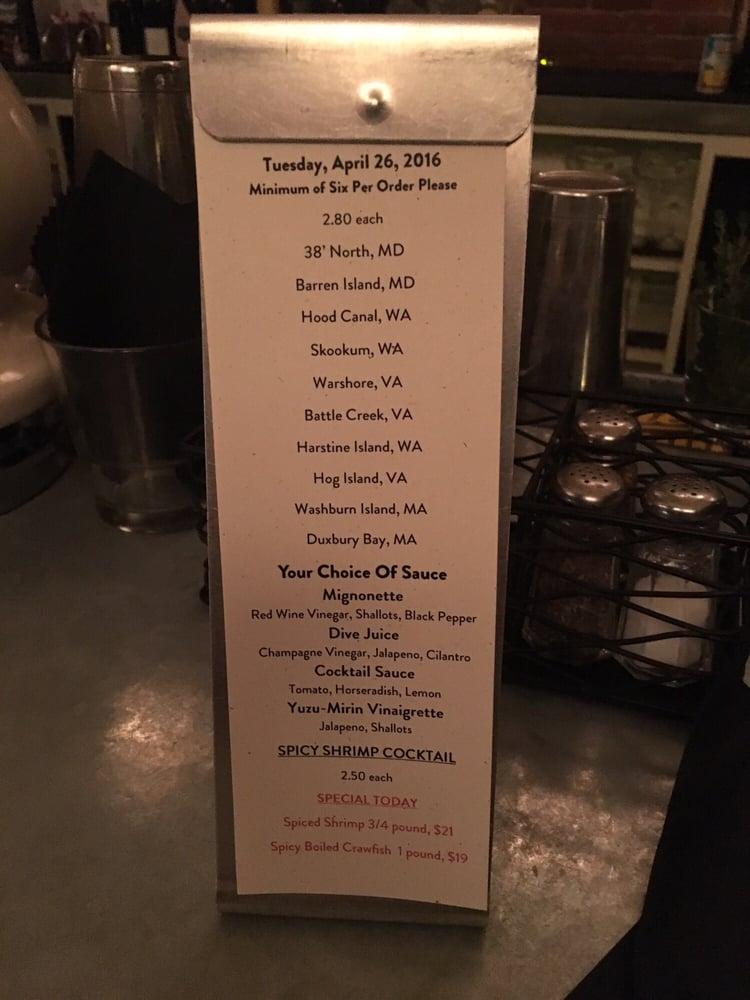 Tuesday, April 26, 2016
Minimum of Six Per Order Please
2.80 each
38' North, MD
Barren Island, MD
Hood Canal, WA
Skookum, WA
Warshore, VA
Battle Creek, VA
Harstine Island, WA
Hog Island, VA
Washburn Island, MA
Duxbury Bay, MA
Your Choice Of Sauce
Mignonette
Red Wine Vinegar, Shallots, Black Pepper
Dive Juice
Champagne Vinegar, Jalapeno, Cilantro
Cocktail Sauce
Tomato, Horseradish, Lemon
Yuzu-Mirin Vinaigrette
Jalapeno, Shallots
SPICY SHRIMP COCKTAIL
2.50 each
SPECIAL TODAY
Spiced Shrimp 3/4 pound, $21
Spicy Boiled Crawfish 1 pound, $19